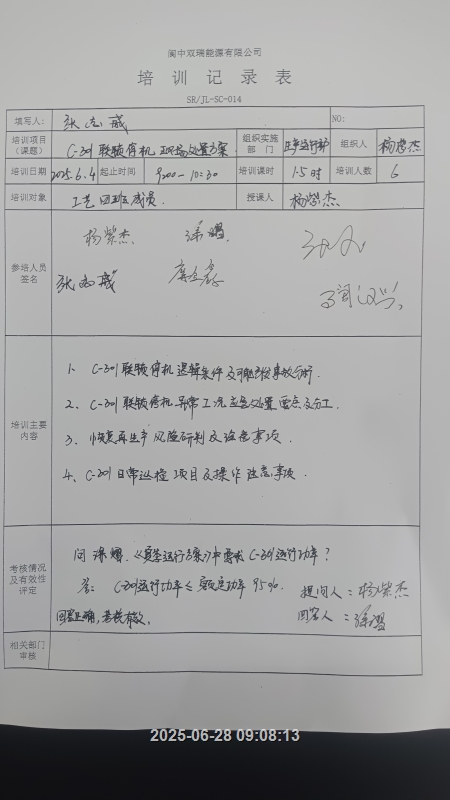 阆中双瑞能源有限公司
培训记录表
SR/JL-SC-014
填写人： 张志威 NO:
培训项目（课题） C-301联锁停机现场处置方案 组织实施部门 组织人 杨紫杰
培训日期 2025.6.4 起止时间 9:00-10:30 培训课时 1.5时 培训人数 6
培训对象 工艺四班成员 授课人 杨紫杰
参培人员签名 杨紫杰
张志威
培训主要内容
1、C-301联锁停机逻辑条件及可能导致事故分析.
2、C-301联锁停机异常工况应急处置要点及分工.
3、恢复再生产风险研判及注意事项.
4、C-301日常巡检项目及操作注意事项.
考核情况及有效性评定
问 《夏季运行方案》中要求C-301运行功率？
答： C-301运行功率≤额定功率95%.
提问人：杨紫杰
回答正确，考核有效。
回答人：
相关部门审核
2025-06-28 09:08:13